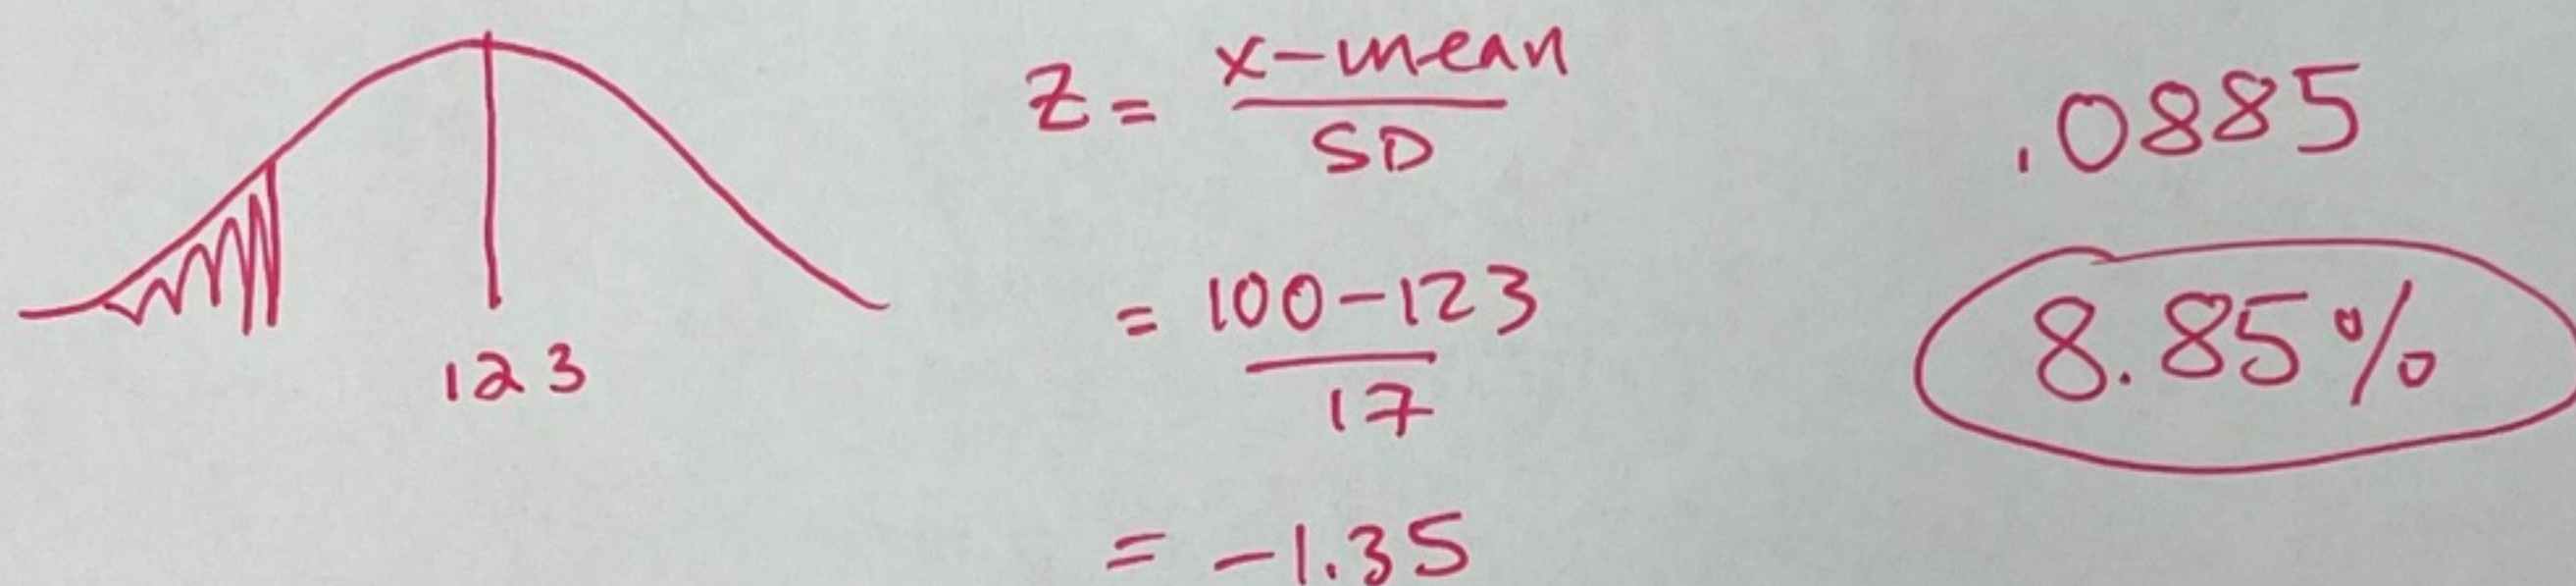 123
Z = x-mean
SD
= 100-123
17
= -1.35
.0885
8.85%